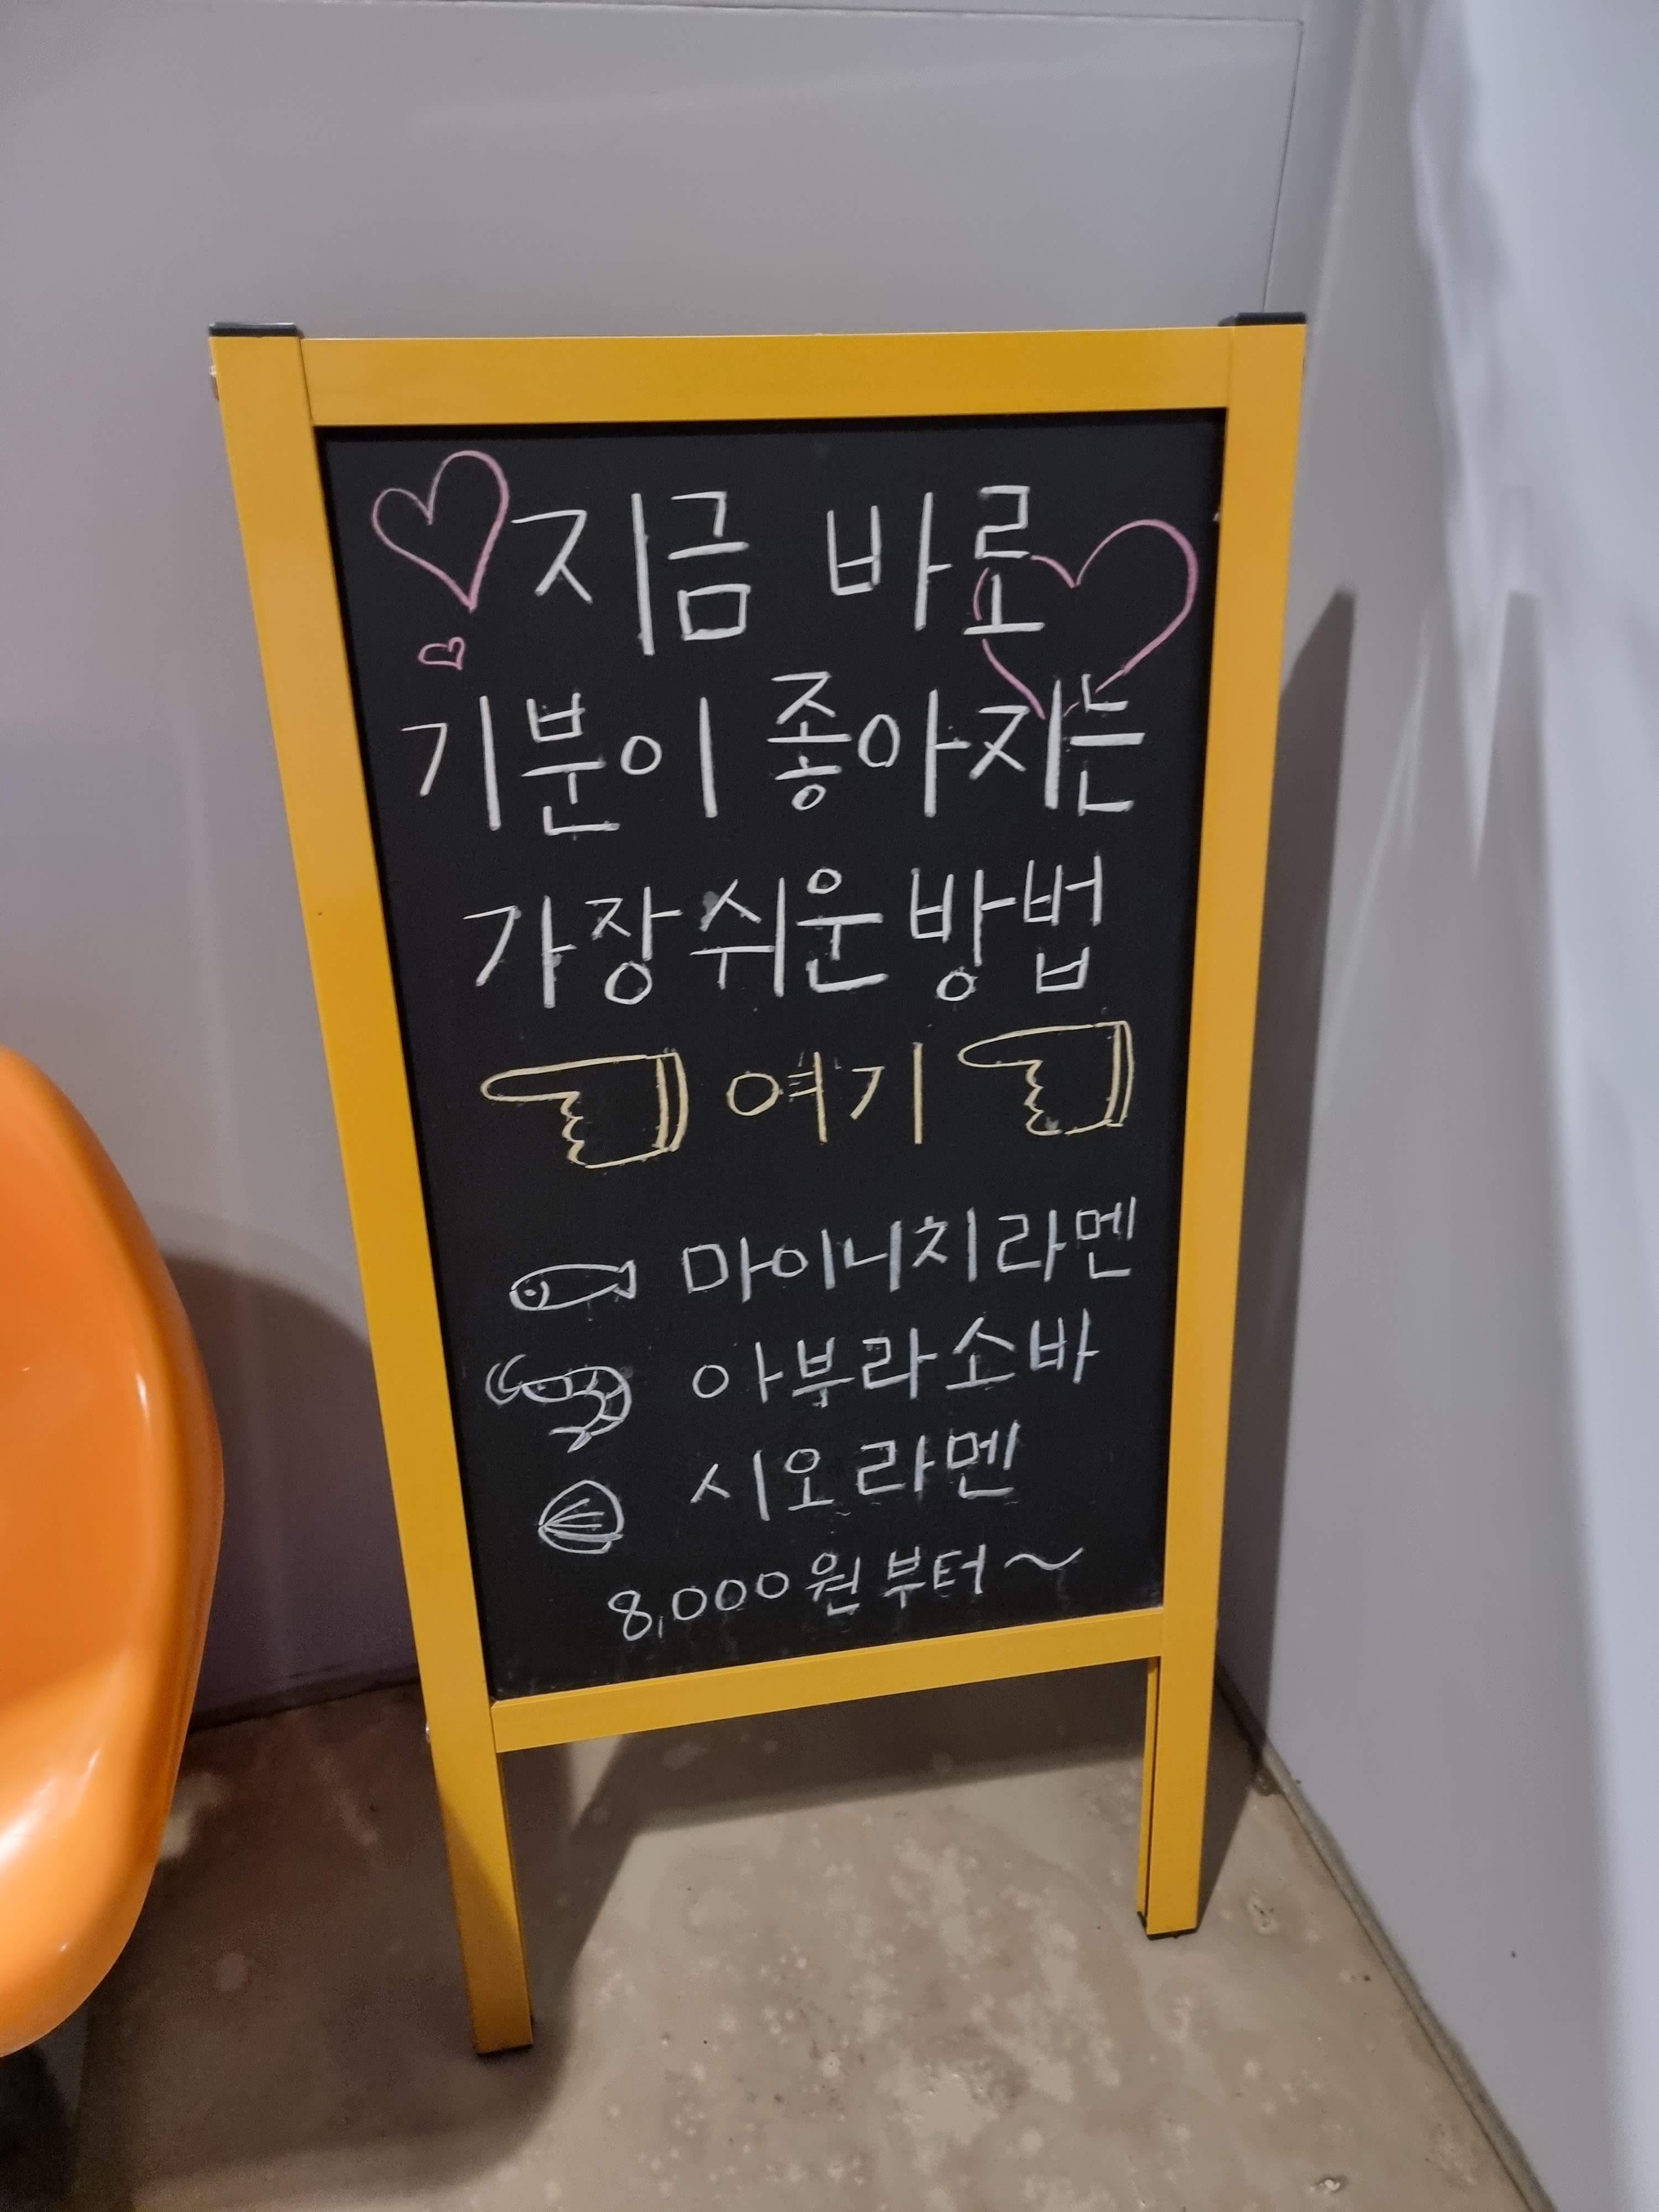 지금 바로
기분이 좋아지는
가장 쉬운 방법
여기
마이니치라멘
아부라소바
시오라멘
8,000원 부터~